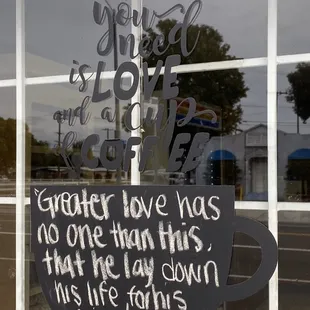 you
need
is LOVE
and a cup
of COFFEE
"Greater love has
no one than this,
that he lay down
his life, for his